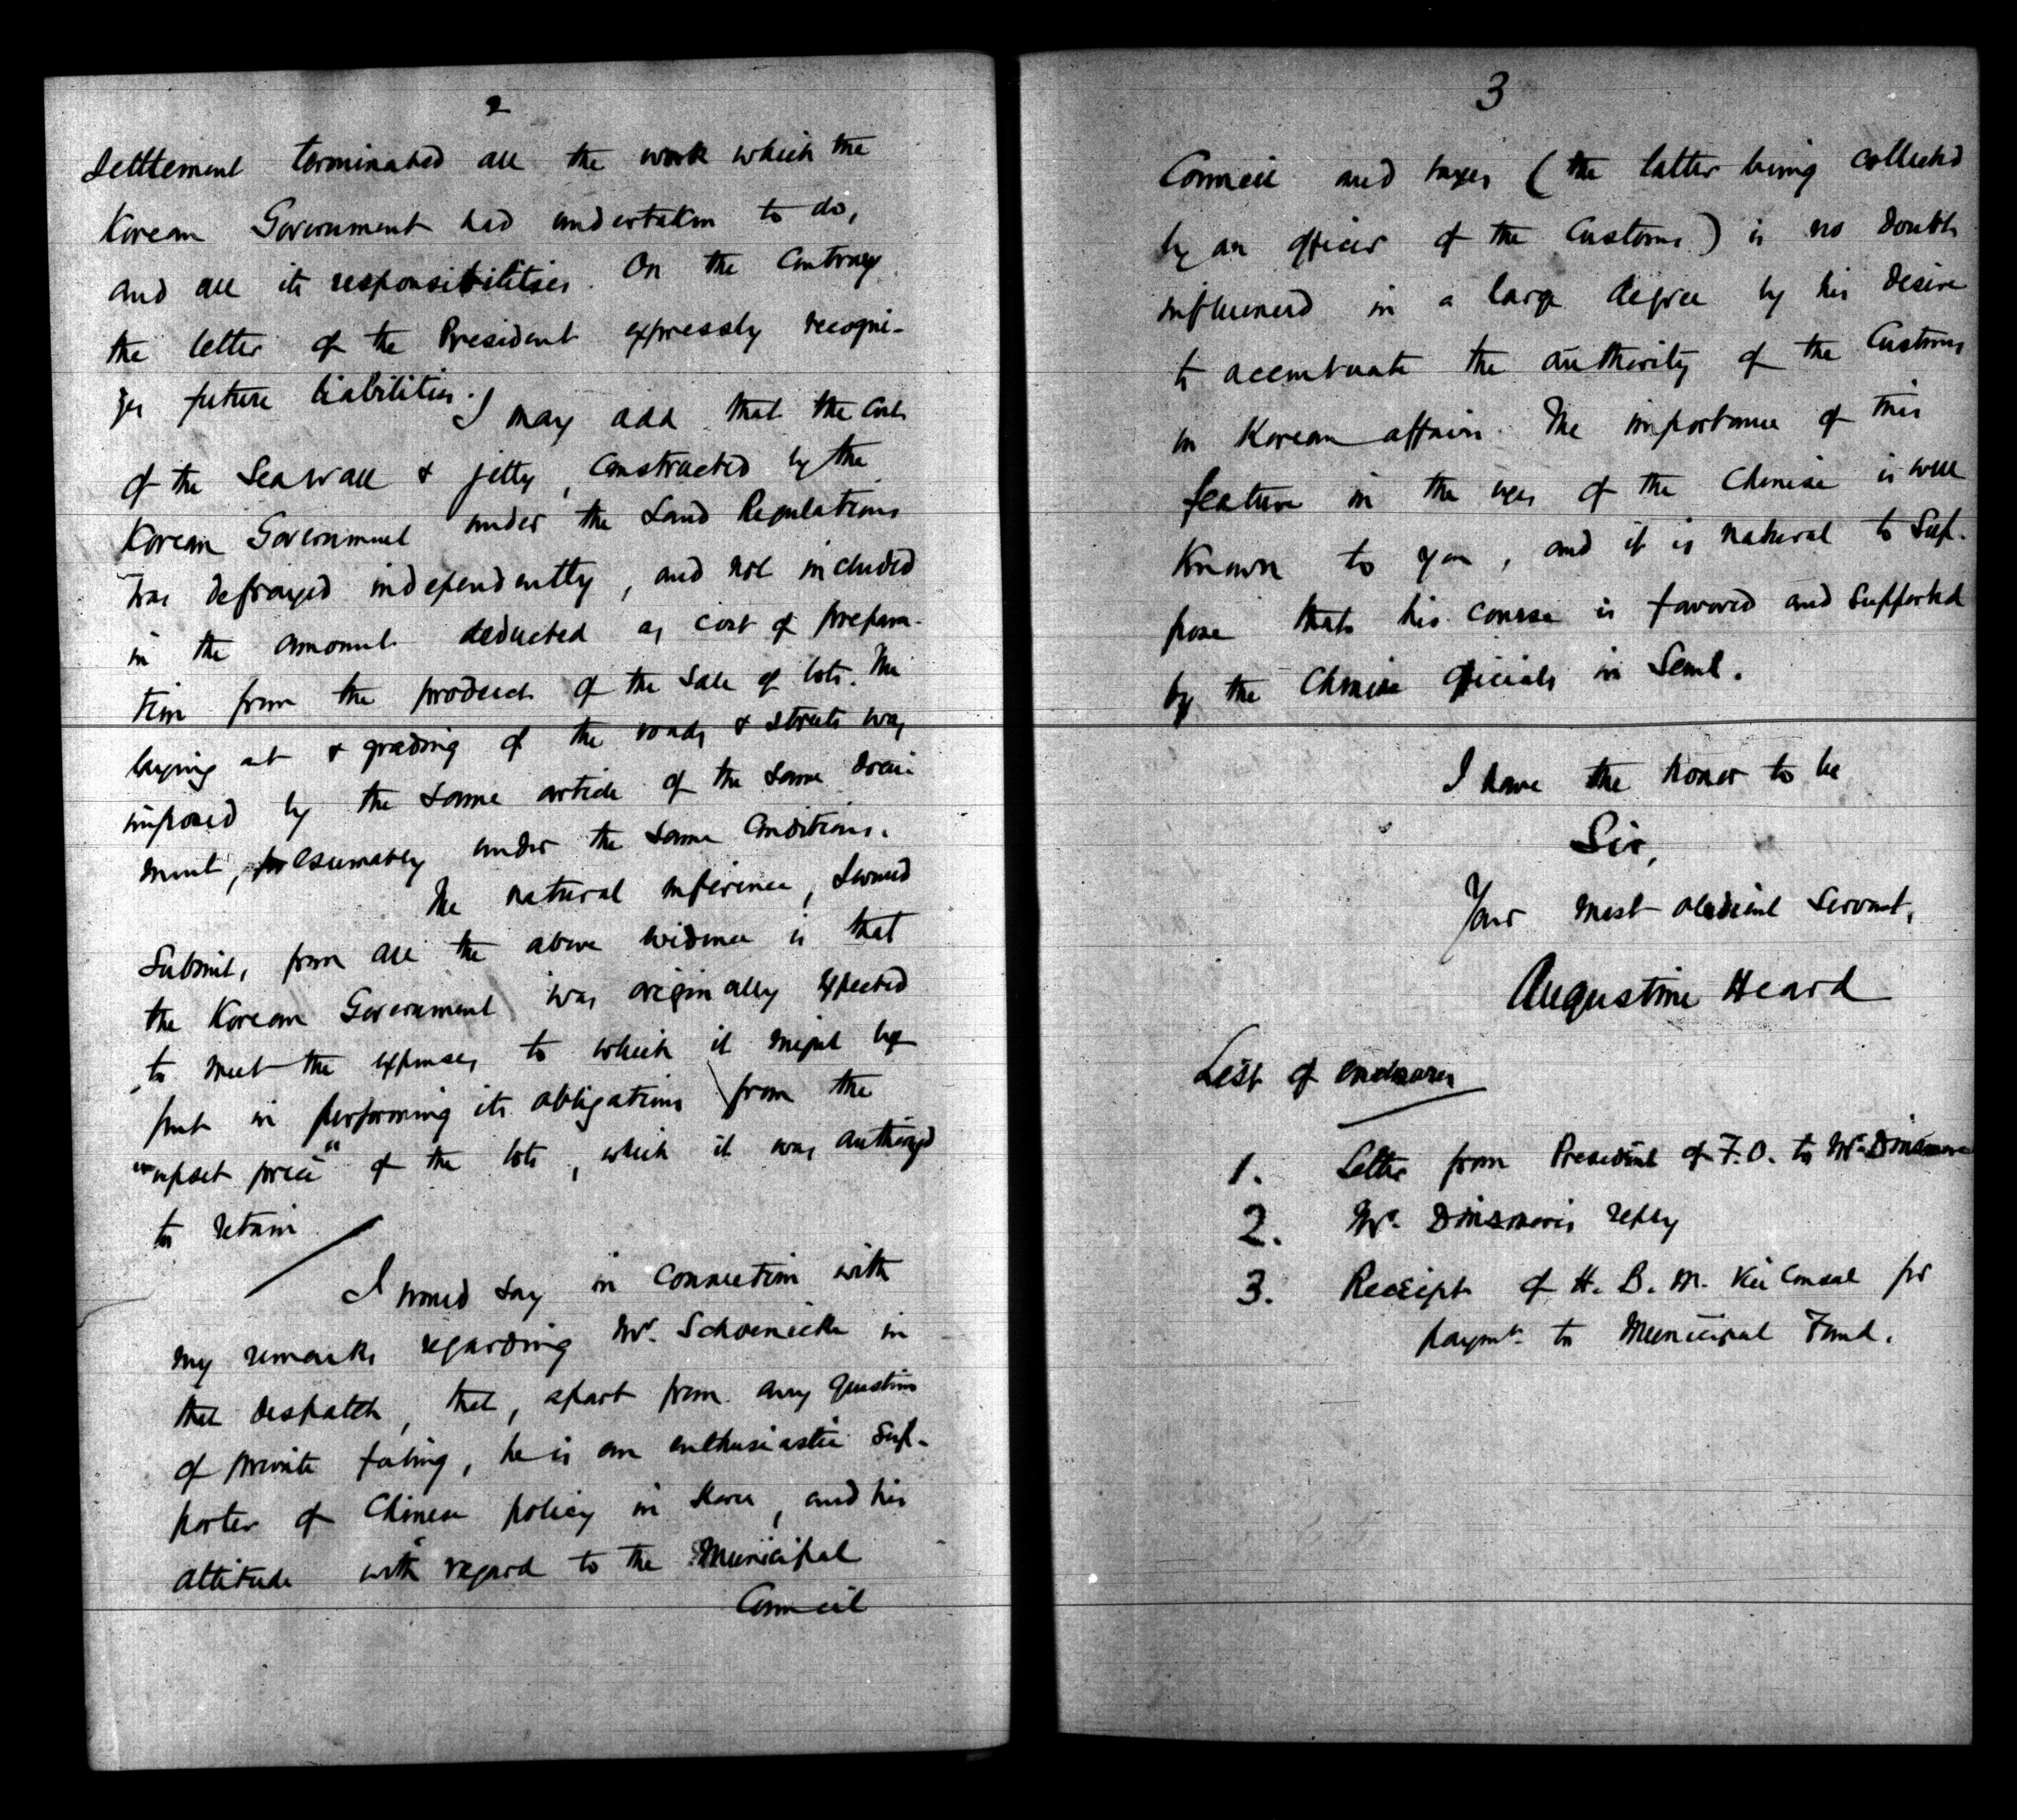 2
Settlement terminated all the work which the
Korean Government had undertaken to do,
and all its responsibilities. On the contrary
the letter of the President expressly recogni-
zes future liabilities.
I may add that the cost
of the Sea wall & jetty, constructed by the
Korean Government under the Land Regulations
was defrayed independently, and not included
in the amount deducted as cost of prepara-
tion from the product of the sale of lots. The
laying out & grading of the roads & streets was
imposed by the same article of the same docu-
ment, presumably under the same conditions.
The natural inference, I would
submit, from all the above evidence is that
the Korean Government was originally expected
to meet the expenses to which it might be
put in performing its obligations from the
"upset price" of the lots, which it was authorized
to retain.
I would say in connection with
my remarks regarding Mr. Schoenicke in
that despatch, that, apart from any question
of private feeling, he is an enthusiastic sup-
porter of Chinese policy in Korea, and his
attitude with regard to the Municipal
Council
3
Council and taxes (the latter being collected
by an officer of the Customs) is no doubt
influenced in a large degree by his desire
to accentuate the authority of the Customs
in Korean affairs. The importance of this
feature in the eyes of the Chinese is well
known to you, and it is natural to sup-
pose that his course is favored and supported
by the Chinese officials in Seoul.
I have the honor to be
Sir,
Your most obedient servant,
Augustine Heard
List of enclosures
1. Letter from President of F.O. to Mr. Dinsmore
2. Mr. Dinsmore's reply
3. Receipt of H. B. M. Vice Consul for
paymt. to Municipal Fund.